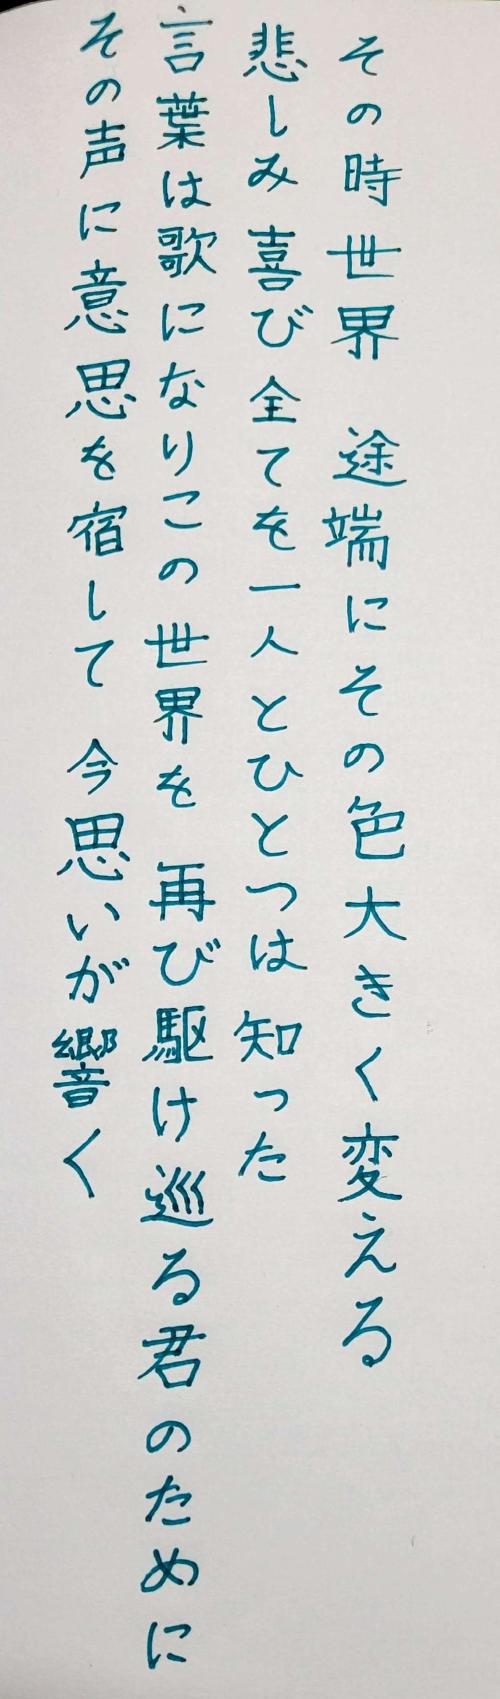 その時世界　途端にその色大きく変える
悲しみ喜び全てを一人とひとつは知った
言葉は歌になりこの世界を　再び駆け巡る君のために
その声に意思を宿して　今思いが響く